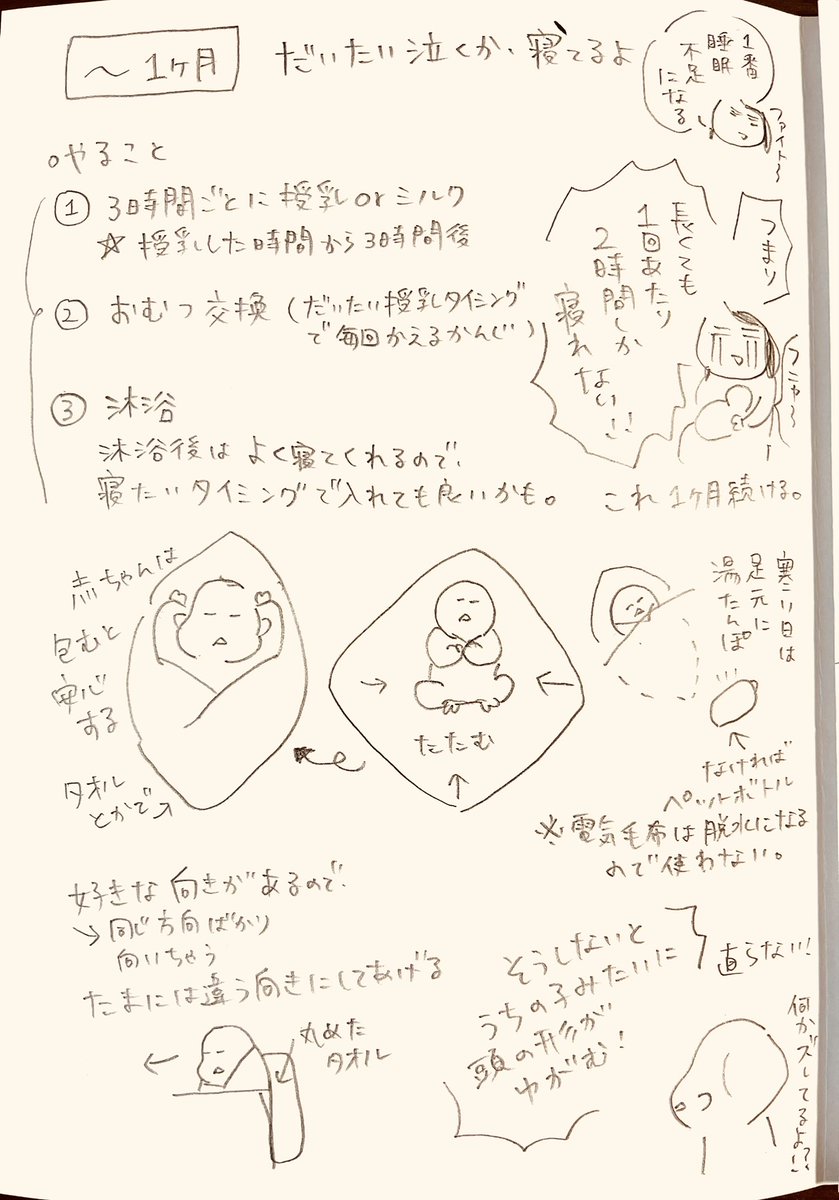 〜1ケ月
だいたい泣くか、寝てるよ
1番
睡眠
不足
になる
ファイト〜
○やること
① 3時間ごとに授乳orミルク
☆ 授乳した時間から3時間後
② おむつ交換 (だいたい授乳タイミング
で毎回かえるかんじ)
③ 沐浴
沐浴後は よく寝てくれるので、
寝たいタイミングで入れても良いかも。
つまり
長くても
1回あたり
2時間しか
寝れない!!
フニャ〜
これ1ケ月続ける。
赤ちゃんは
包むと
安心
する
タオル
とかで→
たたむ
寒い日は
足元に
湯たんぽ
なければ
ペットボトル
※電気毛布は脱水になる
ので使わない。
好きな向きがあるので、
→同じ方向ばかり
向いちゃう
たまには違う向きにしてあげる
丸めた
タオル
そうしないと
うちの子みたいに
頭の形が
ゆがむ!
直らない!
何かズレてるよ!?